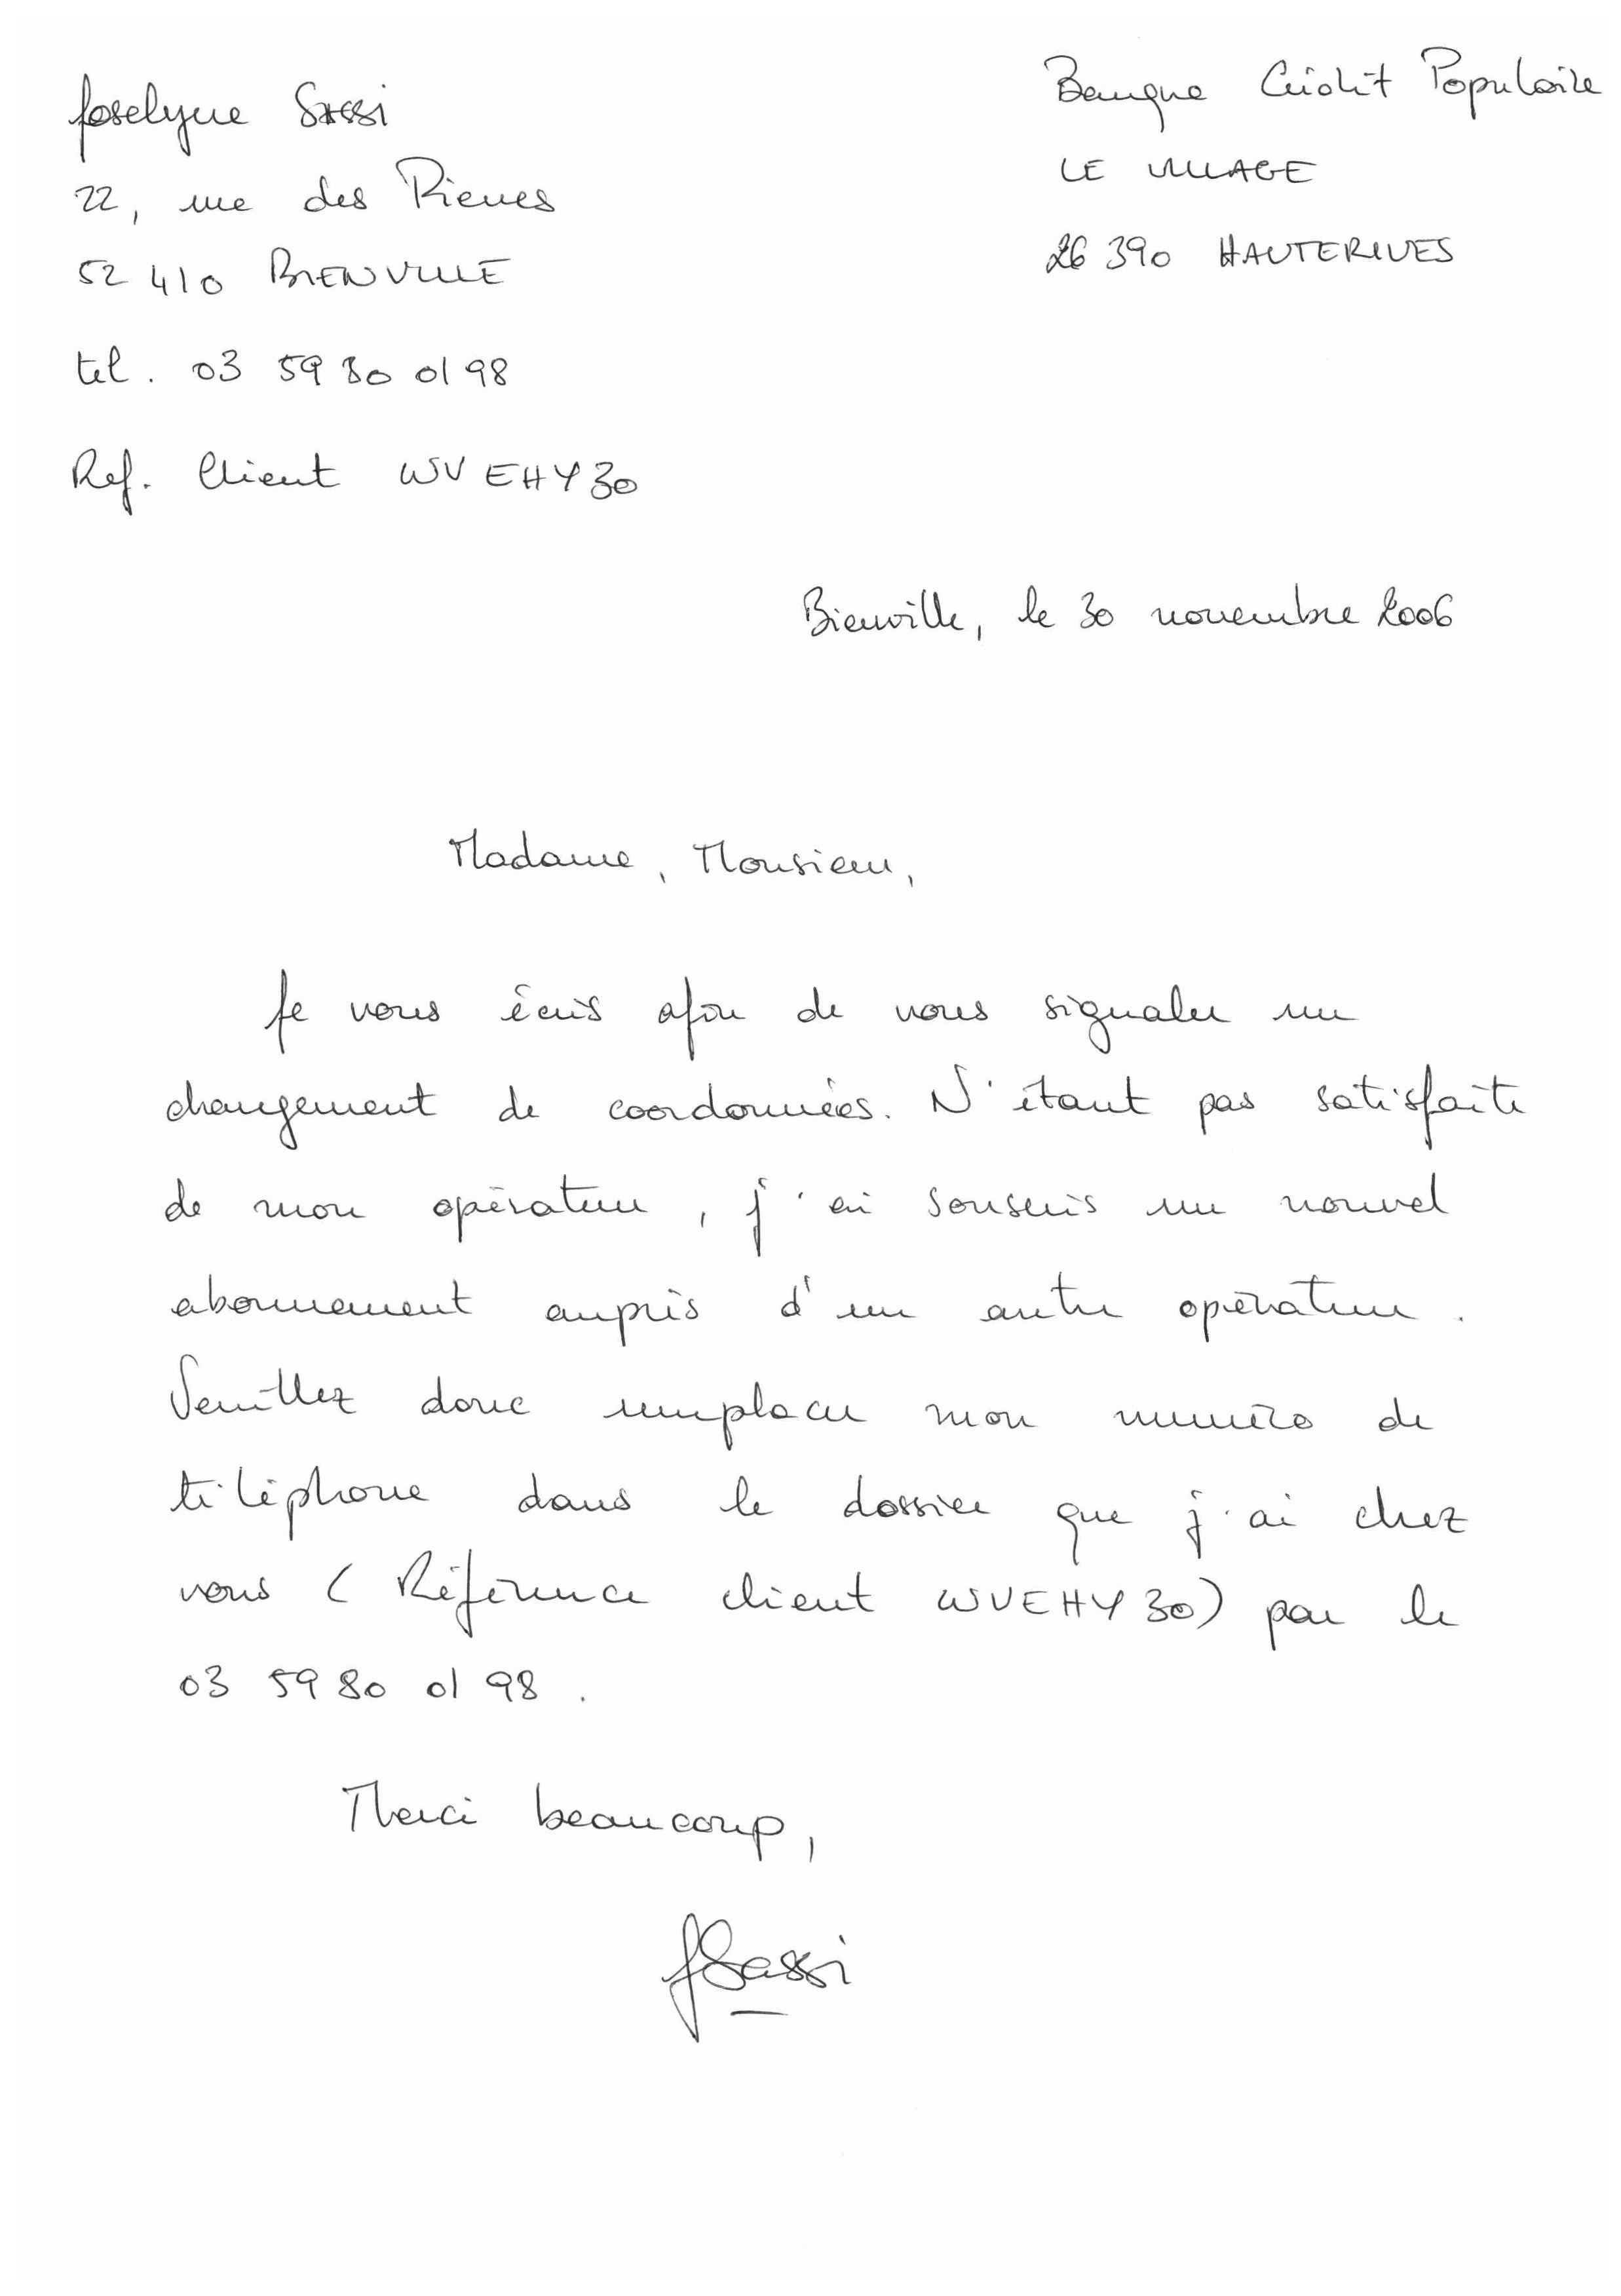 Joselyne Sassi
22, rue des Pierres
52 410 BIENVILLE
tel. 03 59 80 01 98
Ref. Client WVEHY30
Banque Crédit Populaire
LE VILLAGE
26 390 HAUTERIVES
Bienville, le 30 novembre 2006
Madame, Monsieur,
Je vous écris afin de vous signaler un
changement de coordonnées. N'étant pas satisfaite
de mon opérateur, j'ai souscris un nouvel
abonnement auprès d'un autre opérateur.
Veuillez donc remplacer mon numéro de
téléphone dans le dossier que j'ai chez
vous (Référence client WVEHY30) par le
03 59 80 01 98.
Merci beaucoup,
JSassi